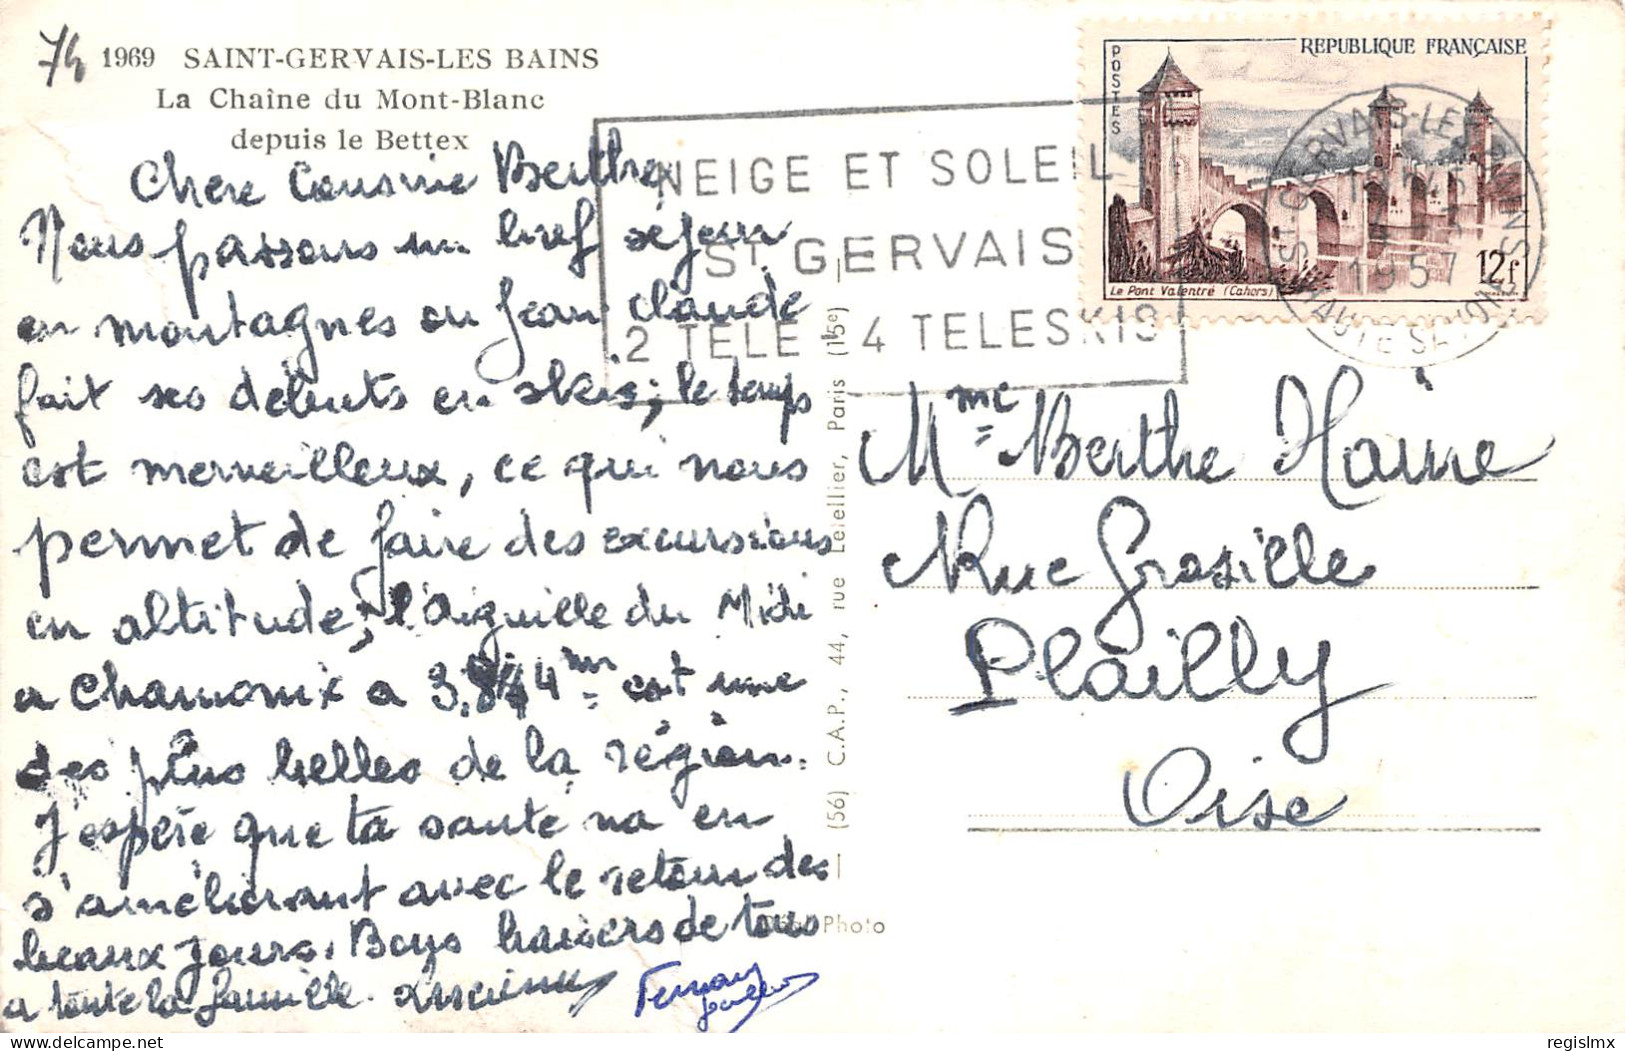 74
1969 SAINT-GERVAIS-LES BAINS
La Chaîne du Mont-Blanc
depuis le Bettex
Chère Cousine Berthe
Nous passons un bref séjour
en montagnes ou Jean Claude
fait ses débuts en skis; le temps
est merveilleux, ce qui nous
permet de faire des excursions
en altitude; l'Aiguille du Midi
a Chamonix a 3.844m est une
des plus belles de la région.
J'espère que ta santé va en
s'améliorant avec le retour des
beaux jours. Bons baisers de tous
a toute la famille. Lucienne
Fernand
NEIGE ET SOLEIL
ST GERVAIS
2 TELE 4 TELESKIS
POSTES
REPUBLIQUE FRANÇAISE
Le Pont Valentré (Cahors)
12f
ST-GERVAIS-LES-BAINS
1957
HAUTE SAVOIE
(56) C.A.P., 44, rue Letellier, Paris (15e)
Photo
Mme Berthe Haine
Rue Grasille
Plailly
Oise
regislmx